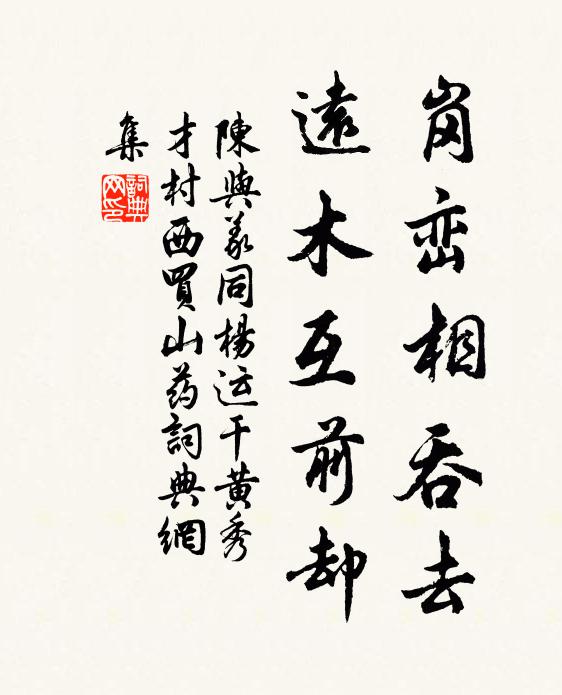 崗峦相吞去
遠木互前却
陳與義同楊运干黄秀
才村西買山药詞典網
集
詞典網印